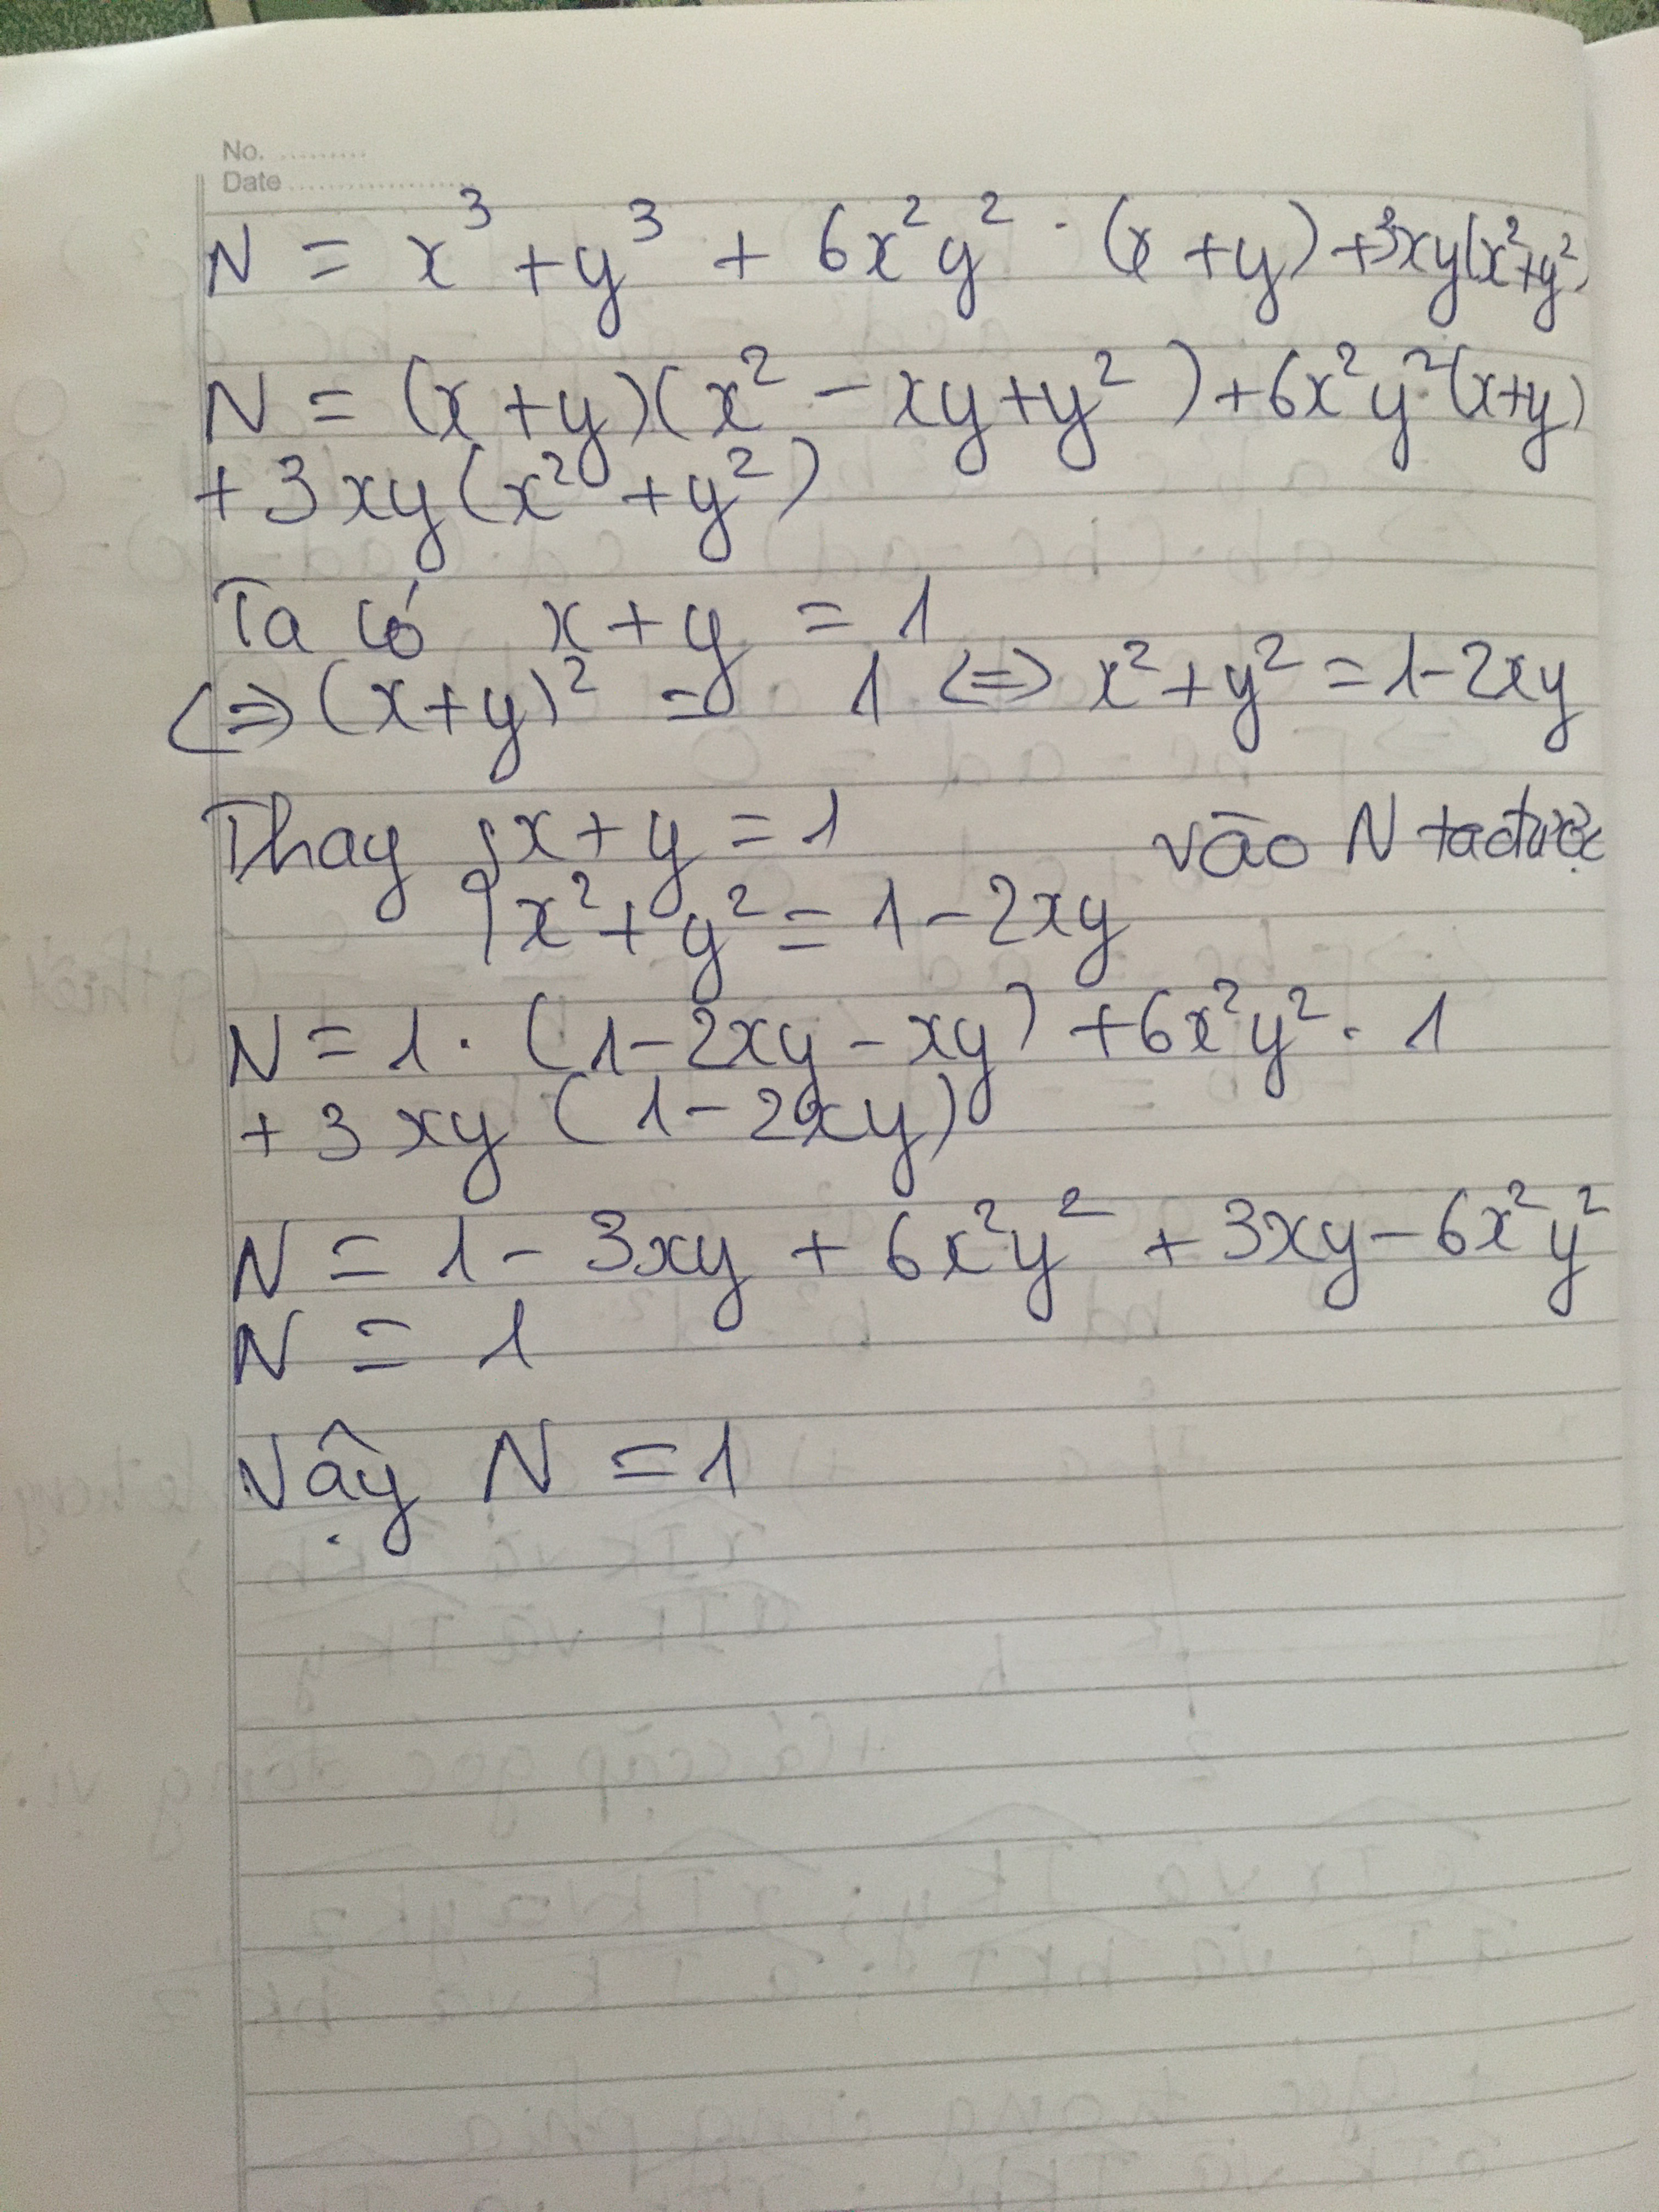 No. .........
Date ....................
N = x³ + y³ + 6x²y² · (x + y) + 3xy(x² + y²)
N = (x + y)(x² - xy + y²) + 6x²y²(x+y)
+ 3xy(x² + y²)
Ta có x + y = 1
<=> (x+y)² = 1 <=> x² + y² = 1 - 2xy
Thay { x + y = 1 vào N ta được
x² + y² = 1 - 2xy
N = 1 · (1 - 2xy - xy) + 6x²y² · 1
+ 3xy (1 - 2xy)
N = 1 - 3xy + 6x²y² + 3xy - 6x²y²
N = 1
Vậy N = 1